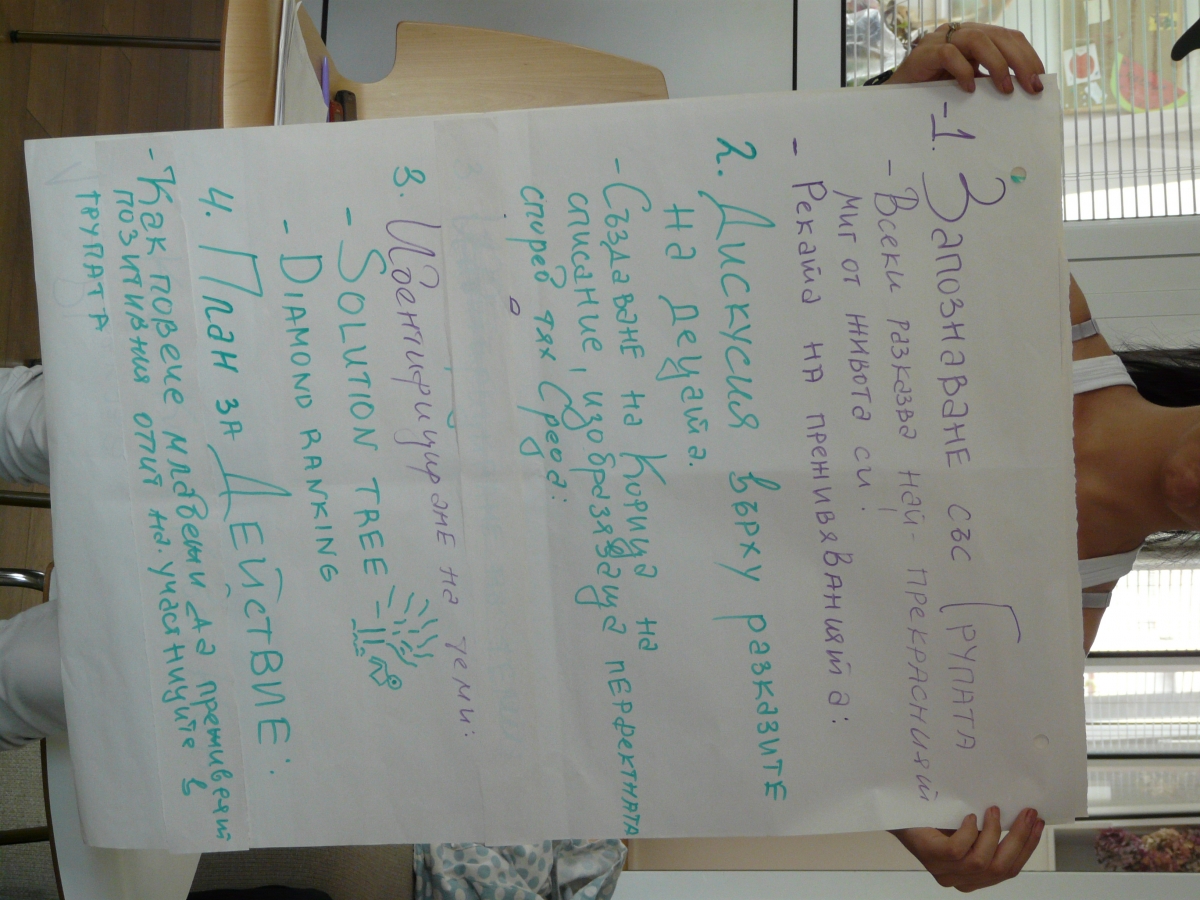 -1. Запознаване със Групата
- Всеки разказва най- прекрасният
миг от живота си!
- Реката на преживяванията:
2. Дискусия върху разказите
на децата.
- Създаване на Корица на
списание, изобразяваща перфектната
според тях Среда:
3. Идентифициране на теми:
- SOLUTION TREE
- DIAMOND RANKING
4. План за Действие:
- Как повече младежи да преживеят
позитивния опит на участниците в
групата